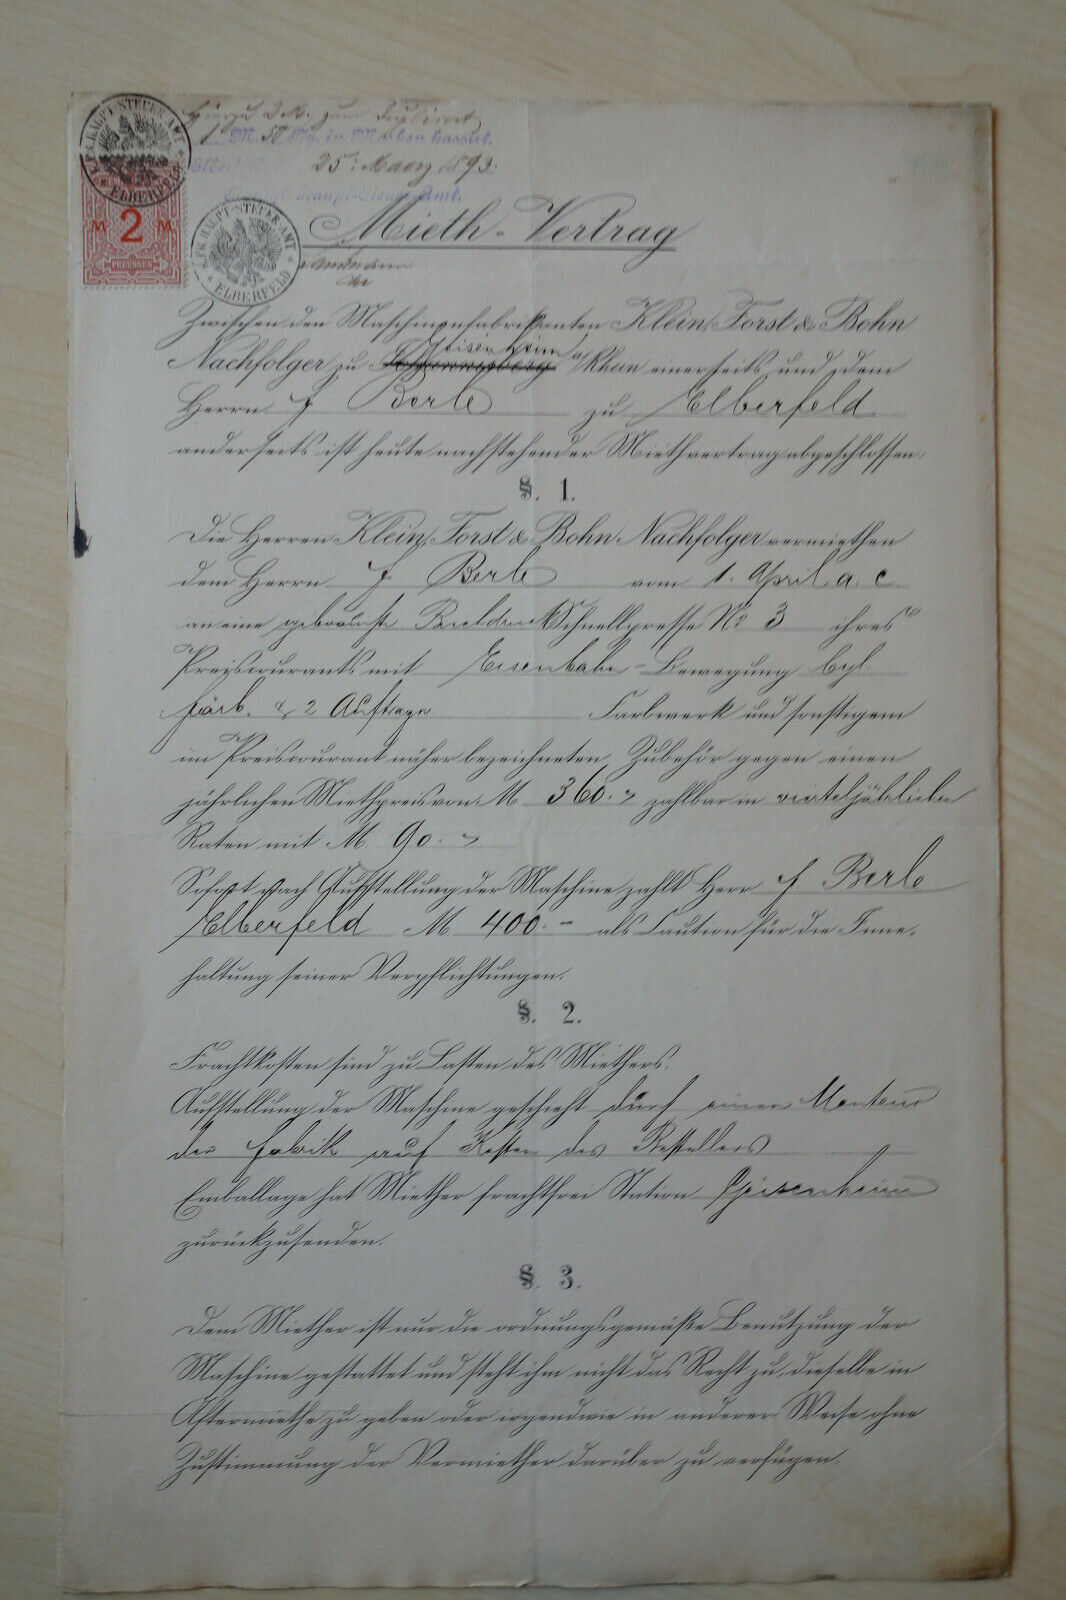 K.PR. HAUPT-STEUER-AMT
* ELBERFELD *
2
M M
PREUSSEN
Hierzu 2 M. zum Duplicat
1 M. 50 Pfg. in Marken kassiert.
Elberfeld 25. Maerz 1893.
Königl. Haupt-Steuer-Amt.
K.PR. HAUPT-STEUER-AMT
* ELBERFELD *
Mieth-Vertrag
Zwischen den Maschinenfabrikanten Klein, Forst & Bohn
Geisenheim
Nachfolger zu Johannisberg a/Rhein einerseits und dem
Herrn J Berle zu Elberfeld
anderseits ist heute nachstehender Miethvertrag abgeschlossen:
§. 1.
Die Herren Klein, Forst & Bohn Nachfolger vermiethen
dem Herrn J Berle vom 1. April a. c.
an eine gebrauchte Buchdruck Schnellpresse No 3 ihres
Preiscourants mit Eisenbahn-Bewegung cyl.
färb. & 2 Auftragw Farbwerk und sonstigem
im Preiscourant näher bezeichneten Zubehör gegen einen
jährlichen Miethpreis von M 360.- zahlbar in vierteljährlichen
Raten mit M. 90.-
Sofort nach Aufstellung der Maschine zahlt Herr J Berle
Elberfeld M 400.- als Caution für die Inne-
haltung seiner Verpflichtungen.
§. 2.
Frachtkosten sind zu Lasten des Miethers.
Aufstellung der Maschine geschieht durch einen Monteur
der Fabrik auf Kosten des Bestellers
Emballage hat Miether frachtfrei Station Geisenheim
zurückzusenden.
§. 3.
Dem Miether ist nur die ordnungsgemäße Benutzung der
Maschine gestattet und steht ihm nicht das Recht zu, dieselbe in
Aftermiethe zu geben oder irgendwie in anderer Weise ohne
Zustimmung der Vermiether darüber zu verfügen.